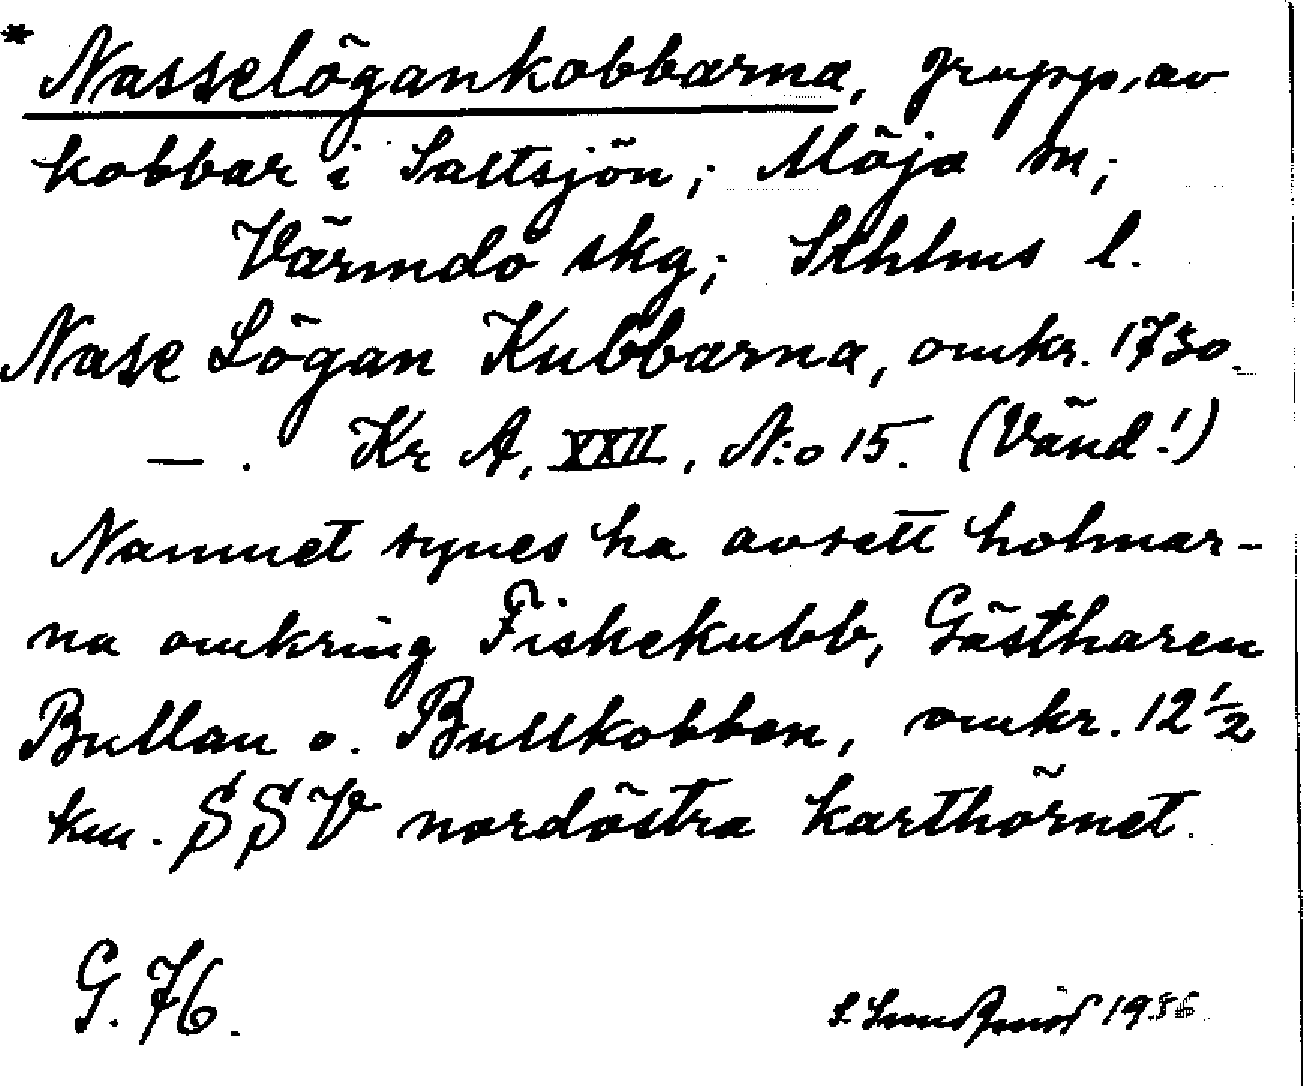 * Nasselögankobbarna, grupp av
kobbar i Saltsjön; Möja sn;
Värmdö skg; Sthlms l.
Nase Lögan Kubbarna, omkr. 1730.
— . Kr A, XXII, N:o 15. (Vänd!)
Namnet synes ha avsett holmar-
na omkring Fiskekubb, Gästharen
Bullan o. Bullkobben, omkr. 12 1/2
km. SSV nordöstra karthörnet.
G. 76.
S. 1936